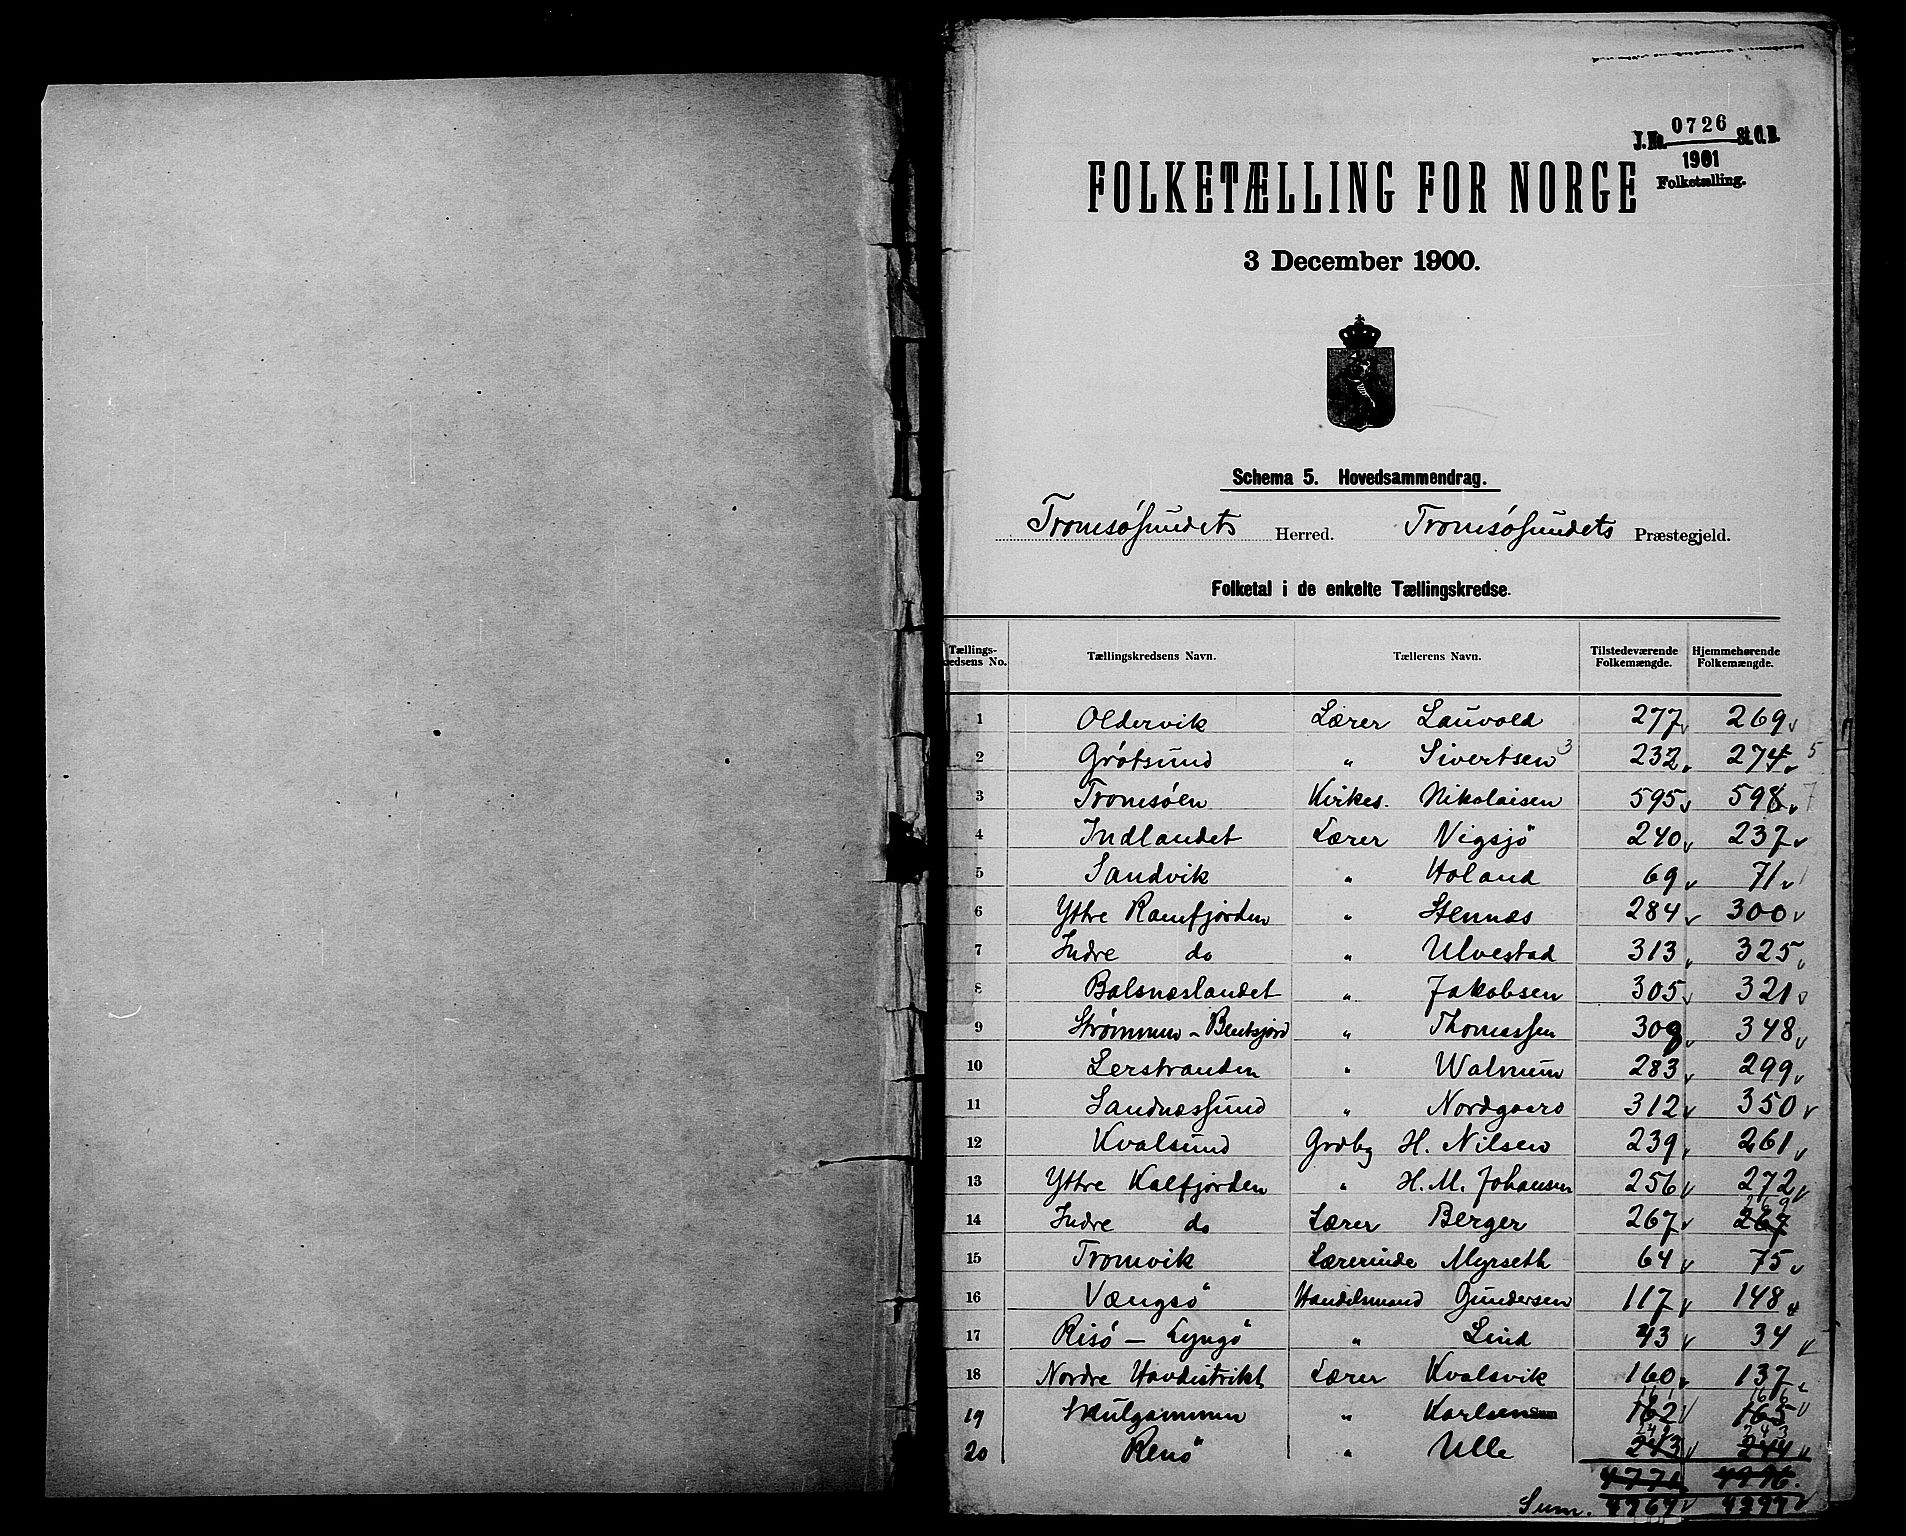 J. No. 0726 St. C. B.
1901
Folketælling.
FOLKETÆLLING FOR NORGE
3 December 1900.
Schema 5. Hovedsammendrag.
Tromsøsundets Herred. Tromsøsundets Præstegjeld.
Folketal i de enkelte Tællingskredse.
Tællings- Tællingskredsens Navn. Tællerens Navn. Tilstedeværende Hjemmehørende
kredsens No. Folkemængde. Folkemængde.
1 Oldervik Lærer Lauvold 277 269
2 Grøtsund " Sivertsen 3 232 274 5
3 Tromsøen Kirkes. Nikolaisen 595 598 7
4 Indlandet Lærer Vigsjö 240 237
5 Sandvik " Holand 69 71
6 Yttre Ramfjorden " Stennæs 284 300
7 Indre do " Ulvestad 313 325
8 Balsnæslandet " Jakobsen 305 321
9 Strømmen - Bentsjord " Thomassen 309 348
10 Lerstranden " Walnum 283 299
11 Sandnæssund " Nordgaard 312 350
12 Kvalsund Grdbg H. Nilsen 239 261
13 Yttre Kalfjorden " H. M. Johansen 256 272
14 Indre do Lærer Berger 267 267
15 Tromvik Lærerinde Myrseth 64 75
16 Vængsö Handelsmand Gundersen 117 148
17 Risö - Lyngö " Lind 43 34
18 Nordre Havdistrikt Lærer Kvalsvik 160 137
161 166
19 Skulgammen " Karlsen Sum 162 165
243
20 Renö " Ulle 243 244
Sum.